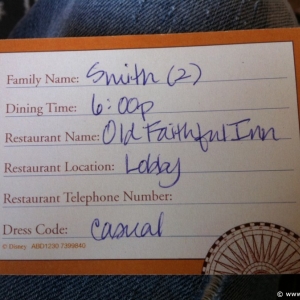 Family Name: Smith (2)
Dining Time: 6:00p
Restaurant Name: Old Faithful Inn
Restaurant Location: Lobby
Restaurant Telephone Number:
Dress Code: Casual
© Disney ABD1230 7399840
© www.